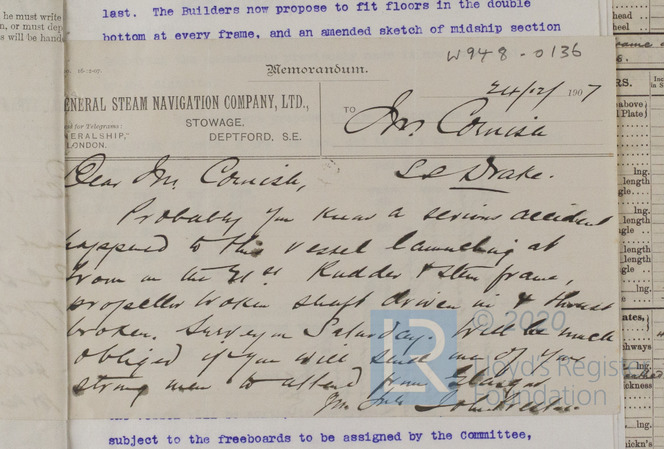 he must write
n, or must dep
s will be hande
last. The Builders now propose to fit floors in the double
bottom at every frame, and an amended sketch of midship section
W948-0136
Memorandum.
GENERAL STEAM NAVIGATION COMPANY, LTD.,
STOWAGE.
DEPTFORD, S.E.
for Telegrams:
NERALSHIP,"
LONDON.
24/12/1907
TO
Mr. Cornish
Dear Mr. Cornish,
SS Drake.
Probably you know a serious accident
happened to this vessel launching at
Troon on the 21st Rudder & stern frame,
propeller broken shaft driven in & thrust
broken. Survey on Saturday. Will be much
obliged if you will send one of your
strong men to attend from Glasgow
© 2020
Lloyd's Register
Foundation
LR
subject to the freeboards to be assigned by the Committee,
head
heel
RS.
above
Plate)
lng.
length
ngle
lng.
length
lng.
lng.
ates,
hways
ickness
lng.
hickn's